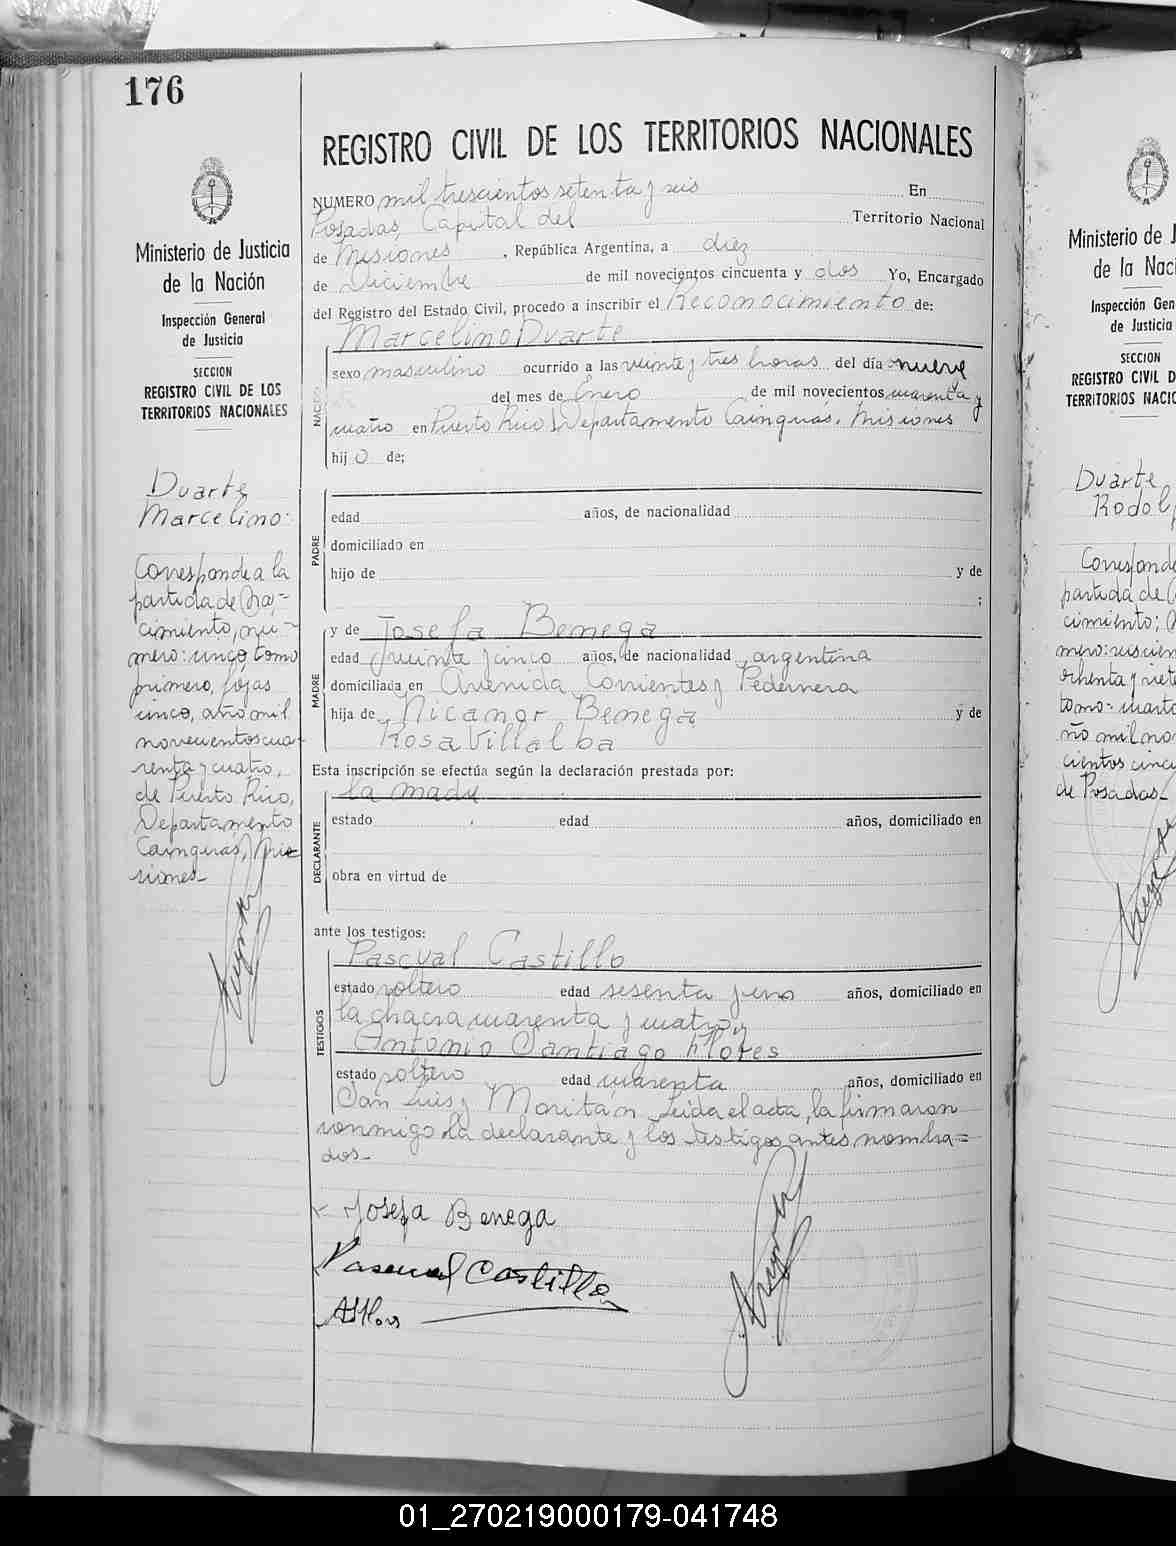 176
REGISTRO CIVIL DE LOS TERRITORIOS NACIONALES
Ministerio de Justicia
de la Nación
Inspección General
de Justicia
SECCION
REGISTRO CIVIL DE LOS
TERRITORIOS NACIONALES
Duarte
Marcelino.
Corresponde a la
partida de Na=
cimiento, nú-
mero: cinco, tomo
primero, fojas
cinco, año mil
novecientos cua-
renta y cuatro,
de Puerto Rico,
Departamento
Cainguas, Mi-
siones-
NUMERO mil trescientos setenta y seis En
Posadas Capital del Territorio Nacional
de Misiones, República Argentina, a diez
de Diciembre de mil novecientos cincuenta y dos Yo, Encargado
del Registro del Estado Civil, procedo a inscribir el Reconocimiento de:
Marcelino Duarte
sexo masculino ocurrido a las veinte y tres horas del día nueve
del mes de Enero de mil novecientos cuarenta y
cuatro en Puerto Rico, Departamento Cainguas, Misiones
hijo de;
PADRE
edad años, de nacionalidad
domiciliado en
hijo de y de
;
MADRE
y de Josefa Benega
edad treinta y cinco años, de nacionalidad argentina
domiciliada en Avenida Corrientes y Pedernera
hija de Nicanor Benega y de
Rosa Villalba
Esta inscripción se efectúa según la declaración prestada por:
la madre
DECLARANTE
estado edad años, domiciliado en
obra en virtud de
ante los testigos:
TESTIGOS
Pascual Castillo
estado soltero edad sesenta y uno años, domiciliado en
la chacra cuarenta y cuatro y
Antonio Santiago Flores
estado soltero edad cuarenta años, domiciliado en
San Luis y Moritán. Leida el acta, la firmaron
conmigo la declarante y los testigos antes nombra=
dos-
Josefa Benega
Pascual Castillo
Ministerio de J
de la Naci
Inspección Gen
de Justicia
SECCION
REGISTRO CIVIL D
TERRITORIOS NACIO
Duarte
Rodol
Corresponde
partida de
cimiento; N
mero: seiscien
ochenta y siete
tomo: cuarto
ño mil no
cientos cincu
de Posadas-
01_270219000179-041748